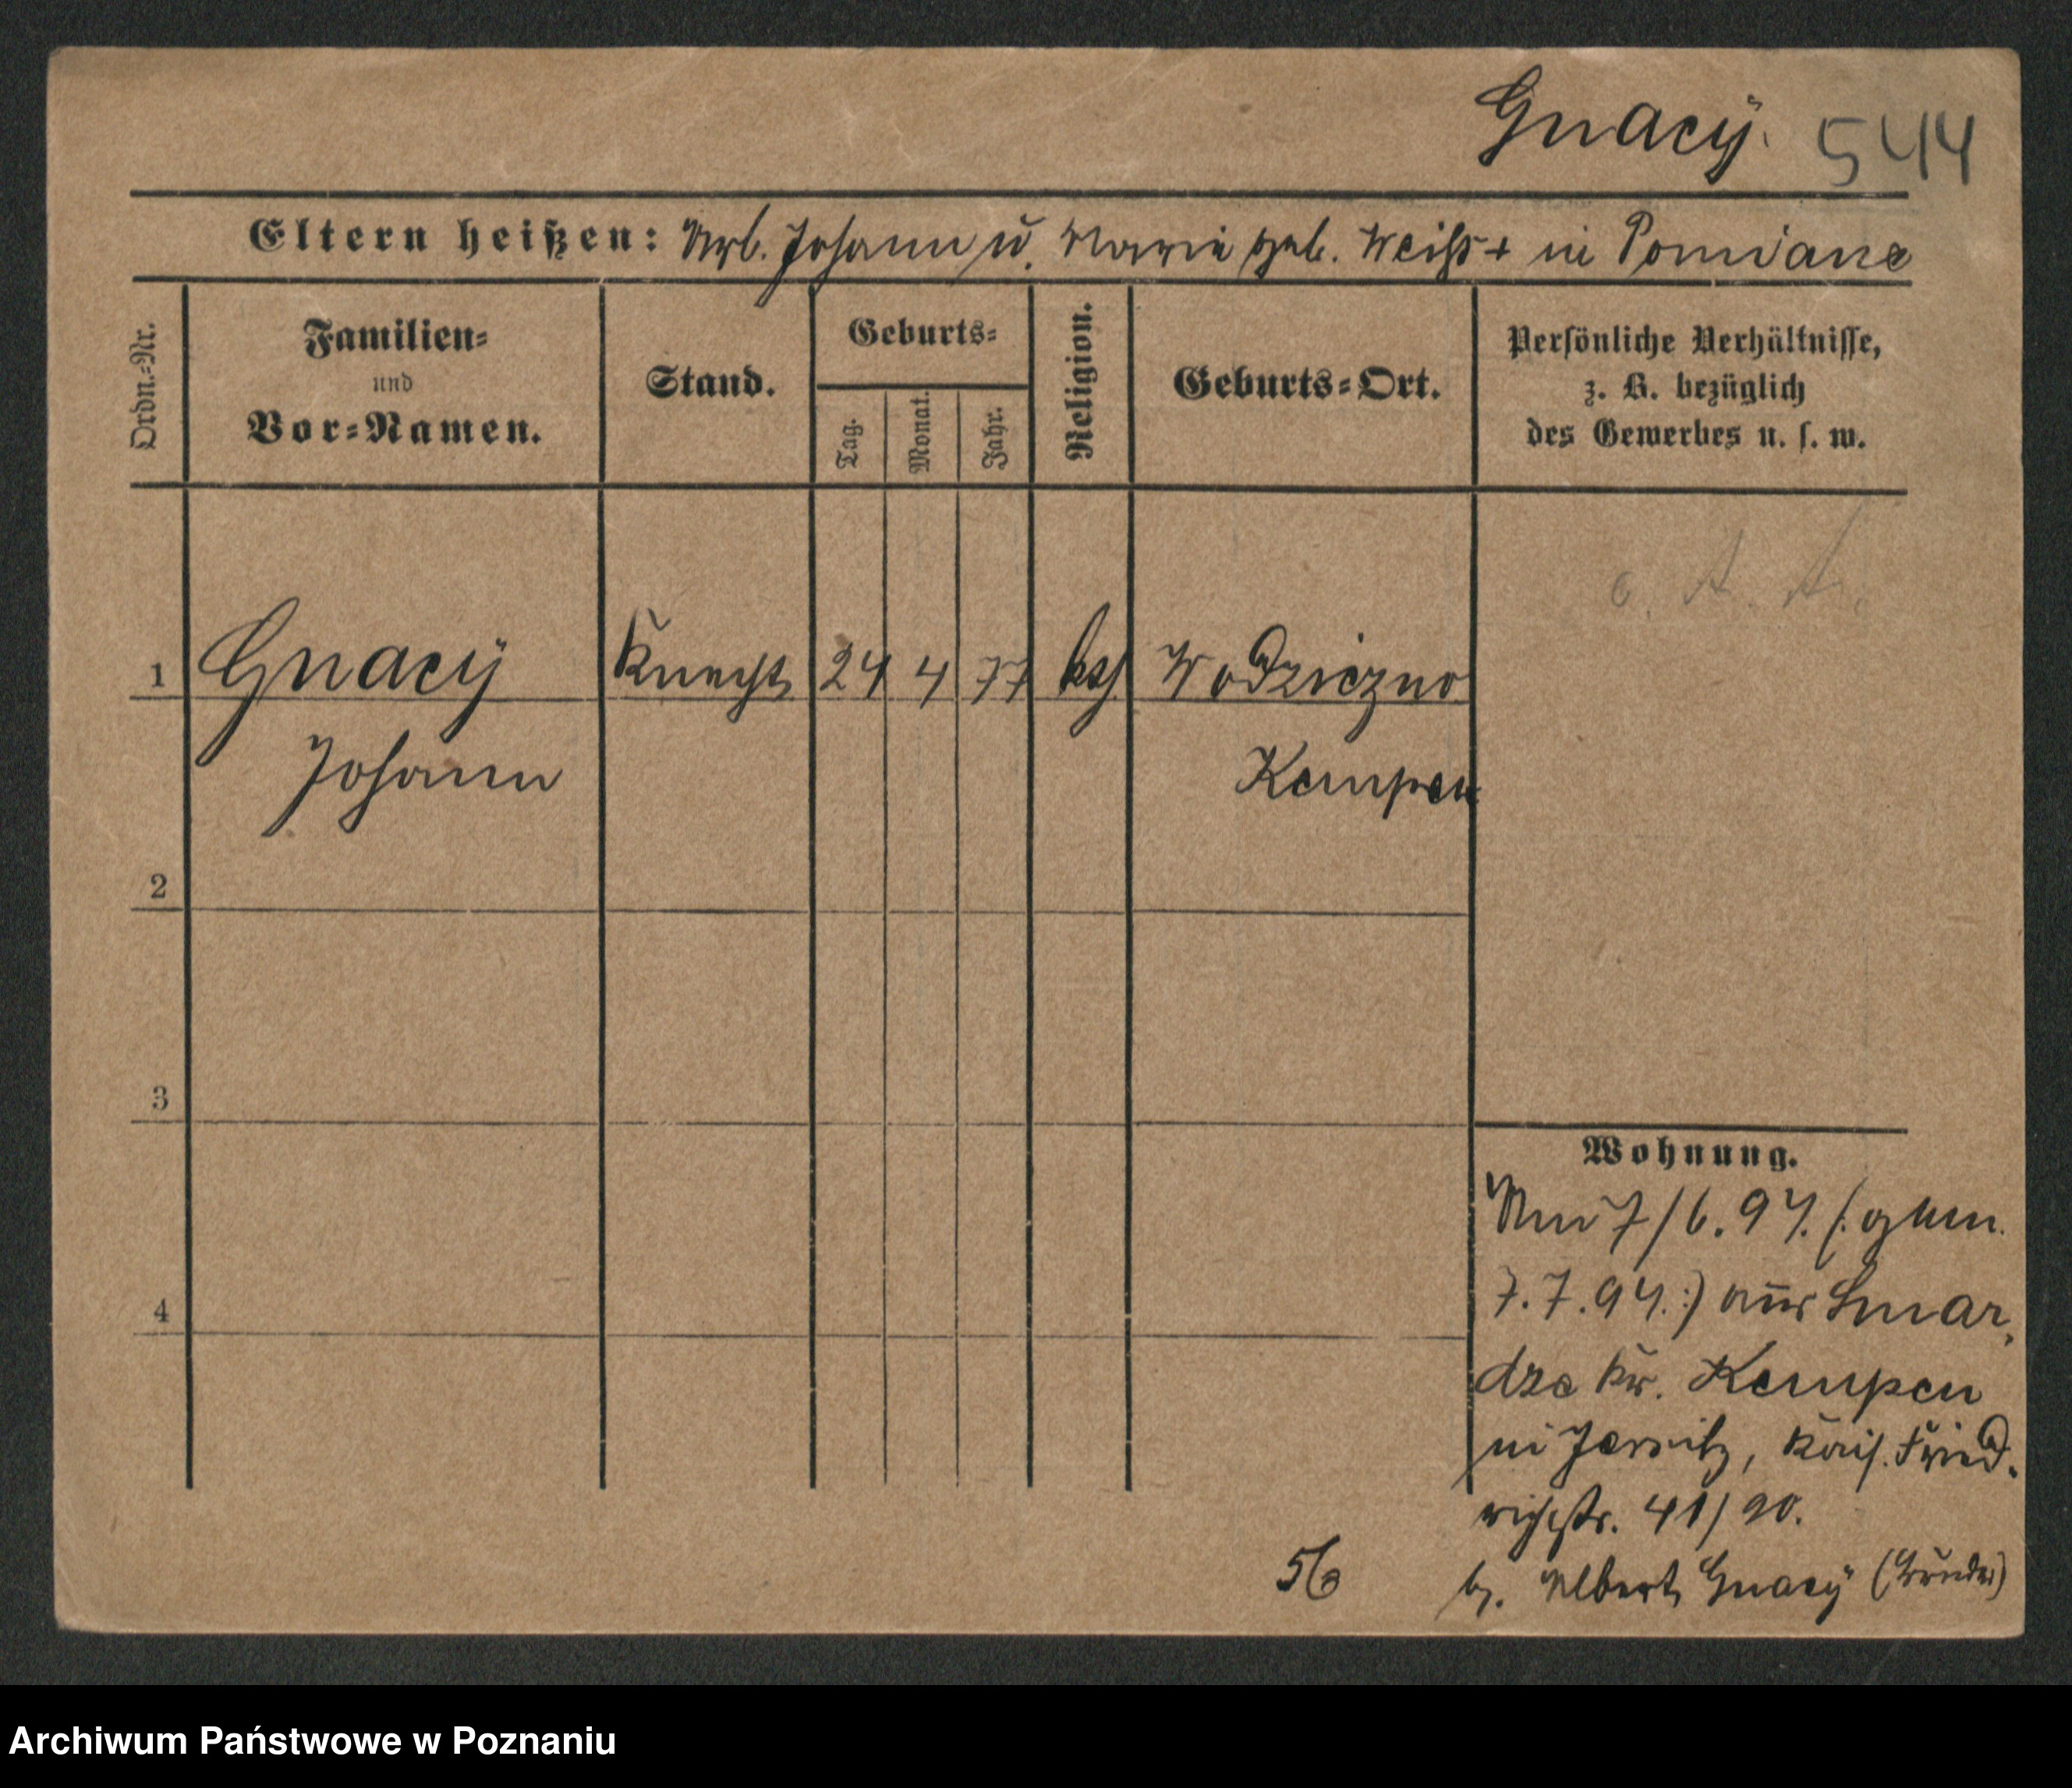 Gnacÿ. 544
Eltern heißen: Arb. Johann u. Maria geb. Weiß + in Pomiane
Ordn.-Nr.
Familien-
und
Vor-Namen.
Stand.
Geburts-
Tag.
Monat.
Jahr.
Religion.
Geburts-Ort.
Persönliche Verhältnisse,
z. B. bezüglich
des Gewerbes u. s. w.
1 Gnacÿ Knecht 24 4 77 kth Wodziczno
Johann Kempen
2
3
4
Wohnung.
Am 7/6.94. (: gem.
7.7.94.:) aus Smar-
dze Kr. Kempen
in Jersitz, Kais. Fried-
richstr. 41/90.
56 b. Albert Gnacÿ (Bruder)
Archiwum Państwowe w Poznaniu